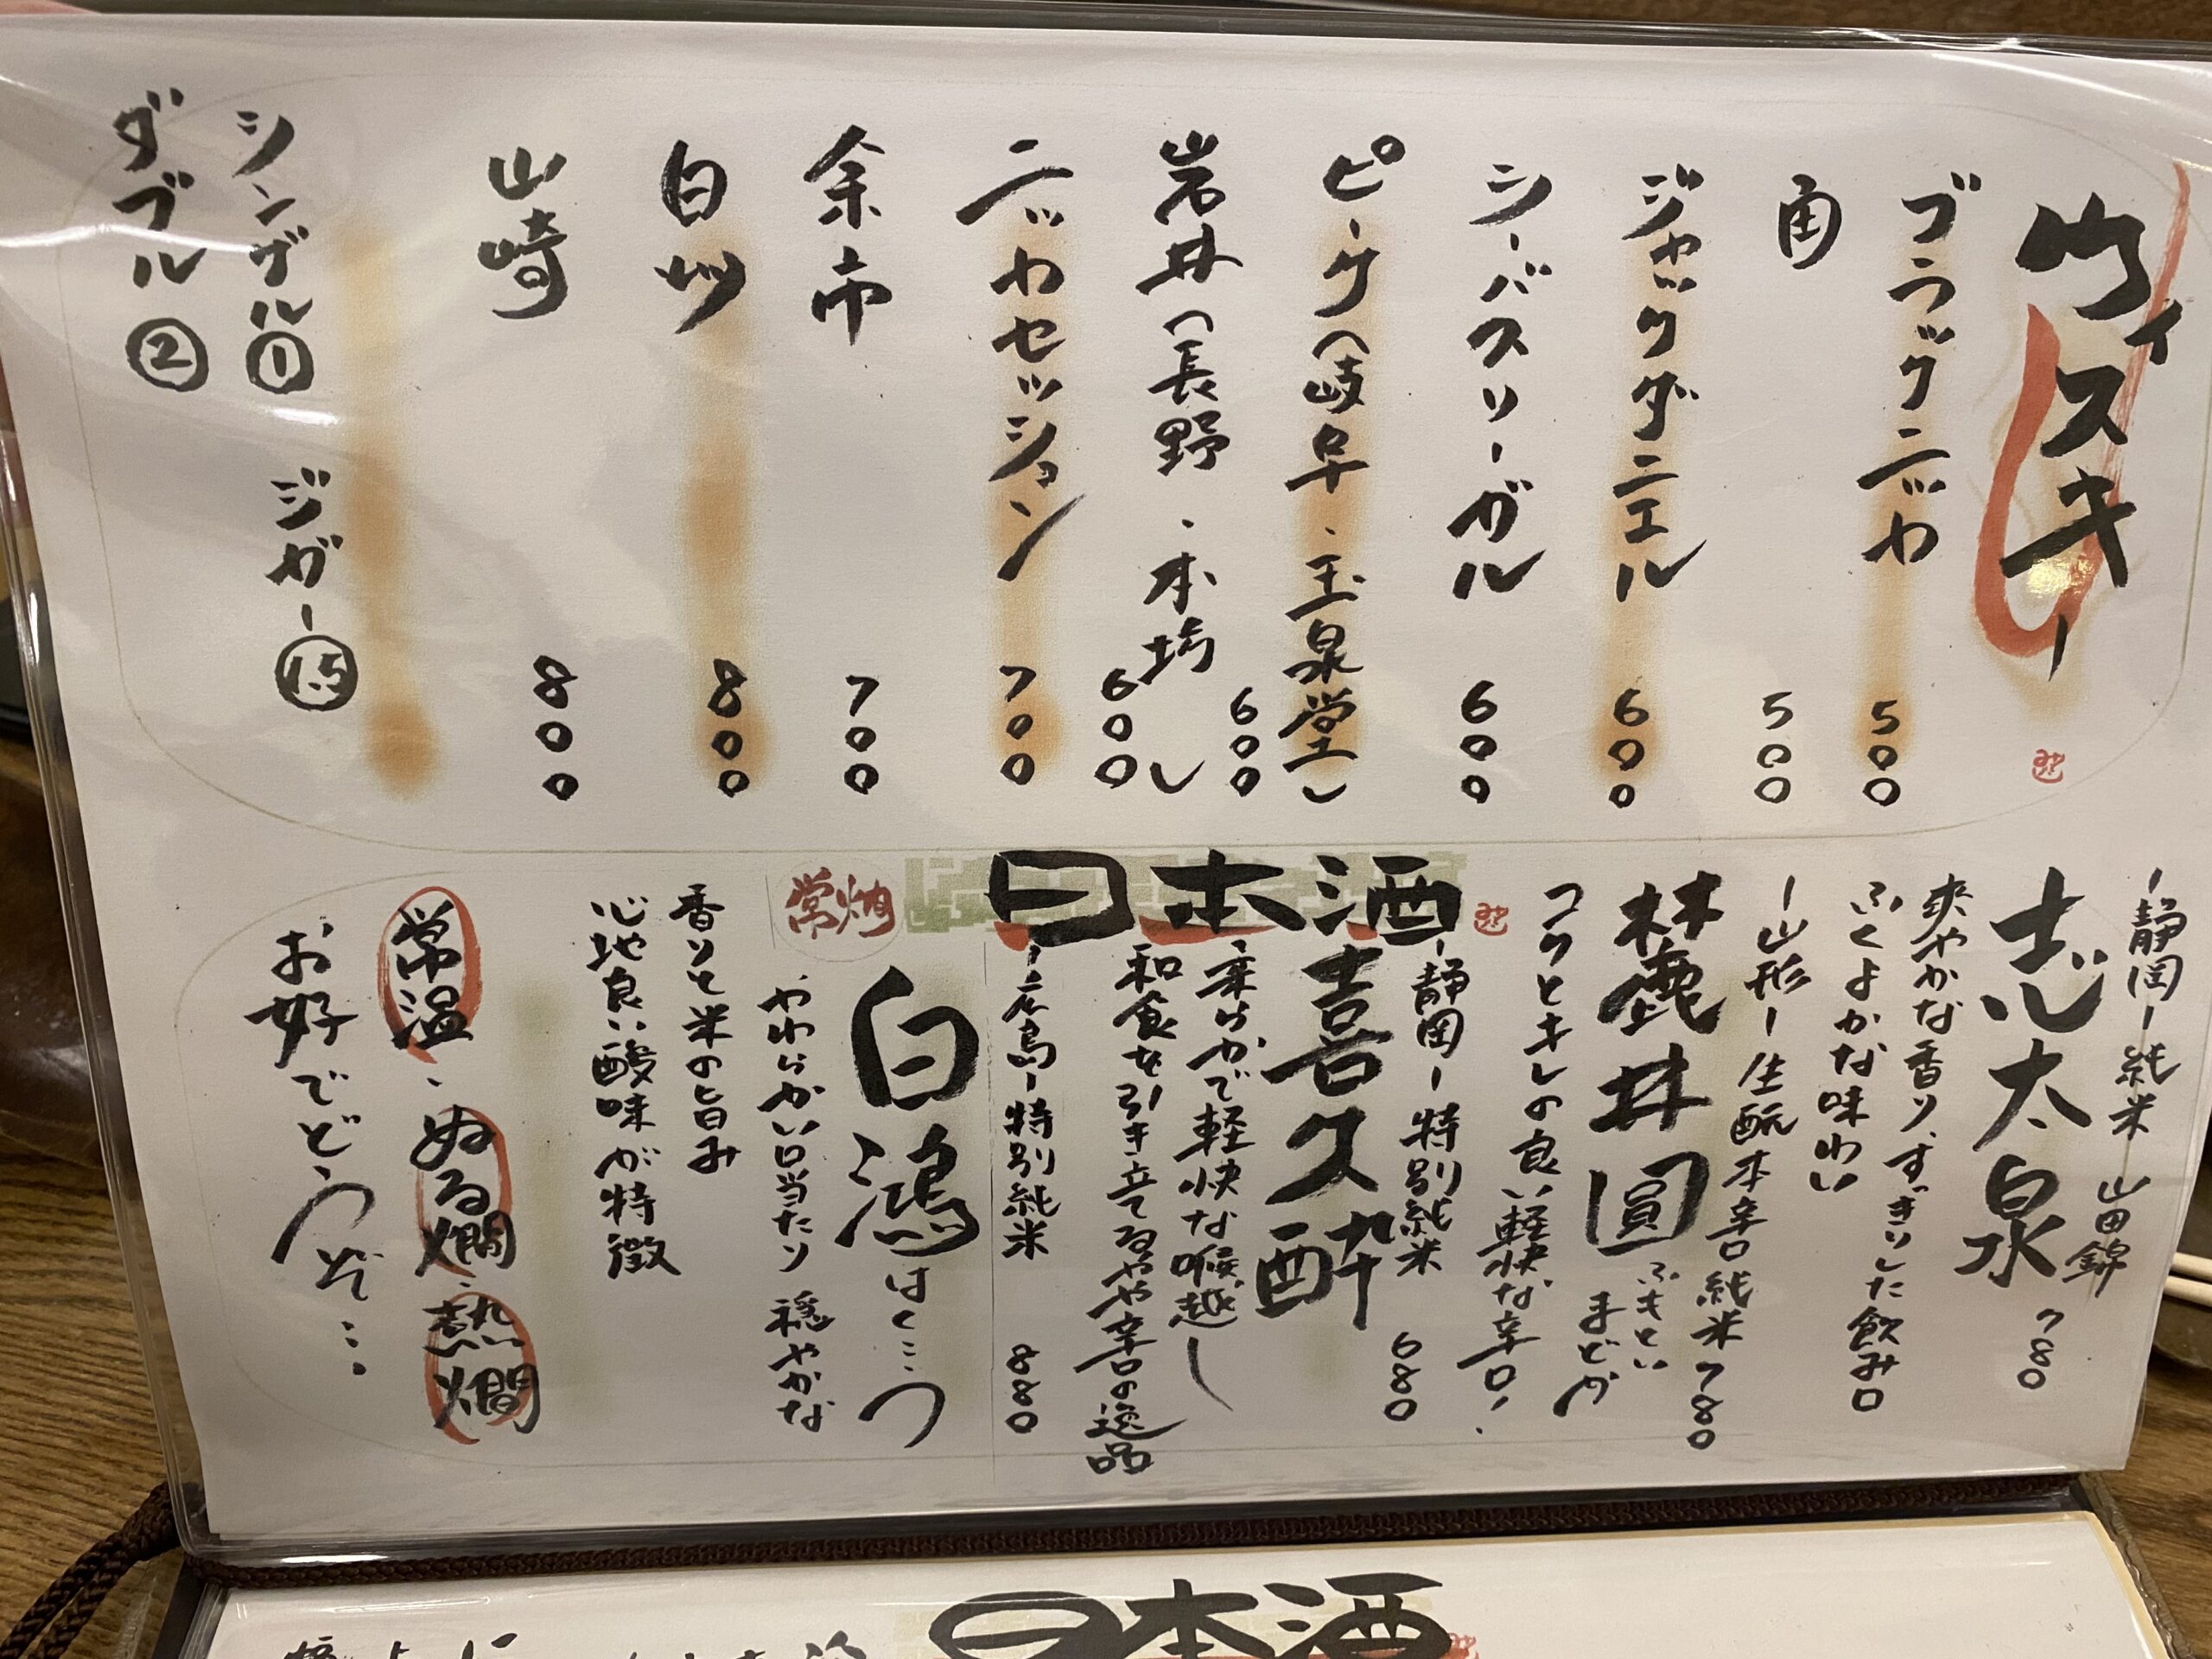 ウィスキー
ブラックニッカ 500
角 500
ジャックダニエル 600
シーバスリーガル 600
ピーク(岐阜・玉泉堂) 600
岩井(長野・本坊) 600
ニッカセッション 700
余市 700
白州 800
山崎 800
シングル① ジガー1.5
ダブル②
日本酒
ー静岡ー純米 山田錦
志太泉 780
爽やかな香り、すっきりした飲み口
ふくよかな味わい
ー山形ー生酛本辛口純米 780
麓井 圓
ふもとい
まどか
コクとキレの良い軽快な辛口!
ー静岡ー特別純米 680
喜久酔
柔らかで軽快な喉越し
和食を引き立てるやや辛口の逸品
常燗
ー広島ー特別純米 880
白鴻 はくこう
やわらかい口当たり 穏やかな
香りと米の旨み
心地良い酸味が特徴
常温・ぬる燗・熱燗
お好でどうぞ…
日本酒